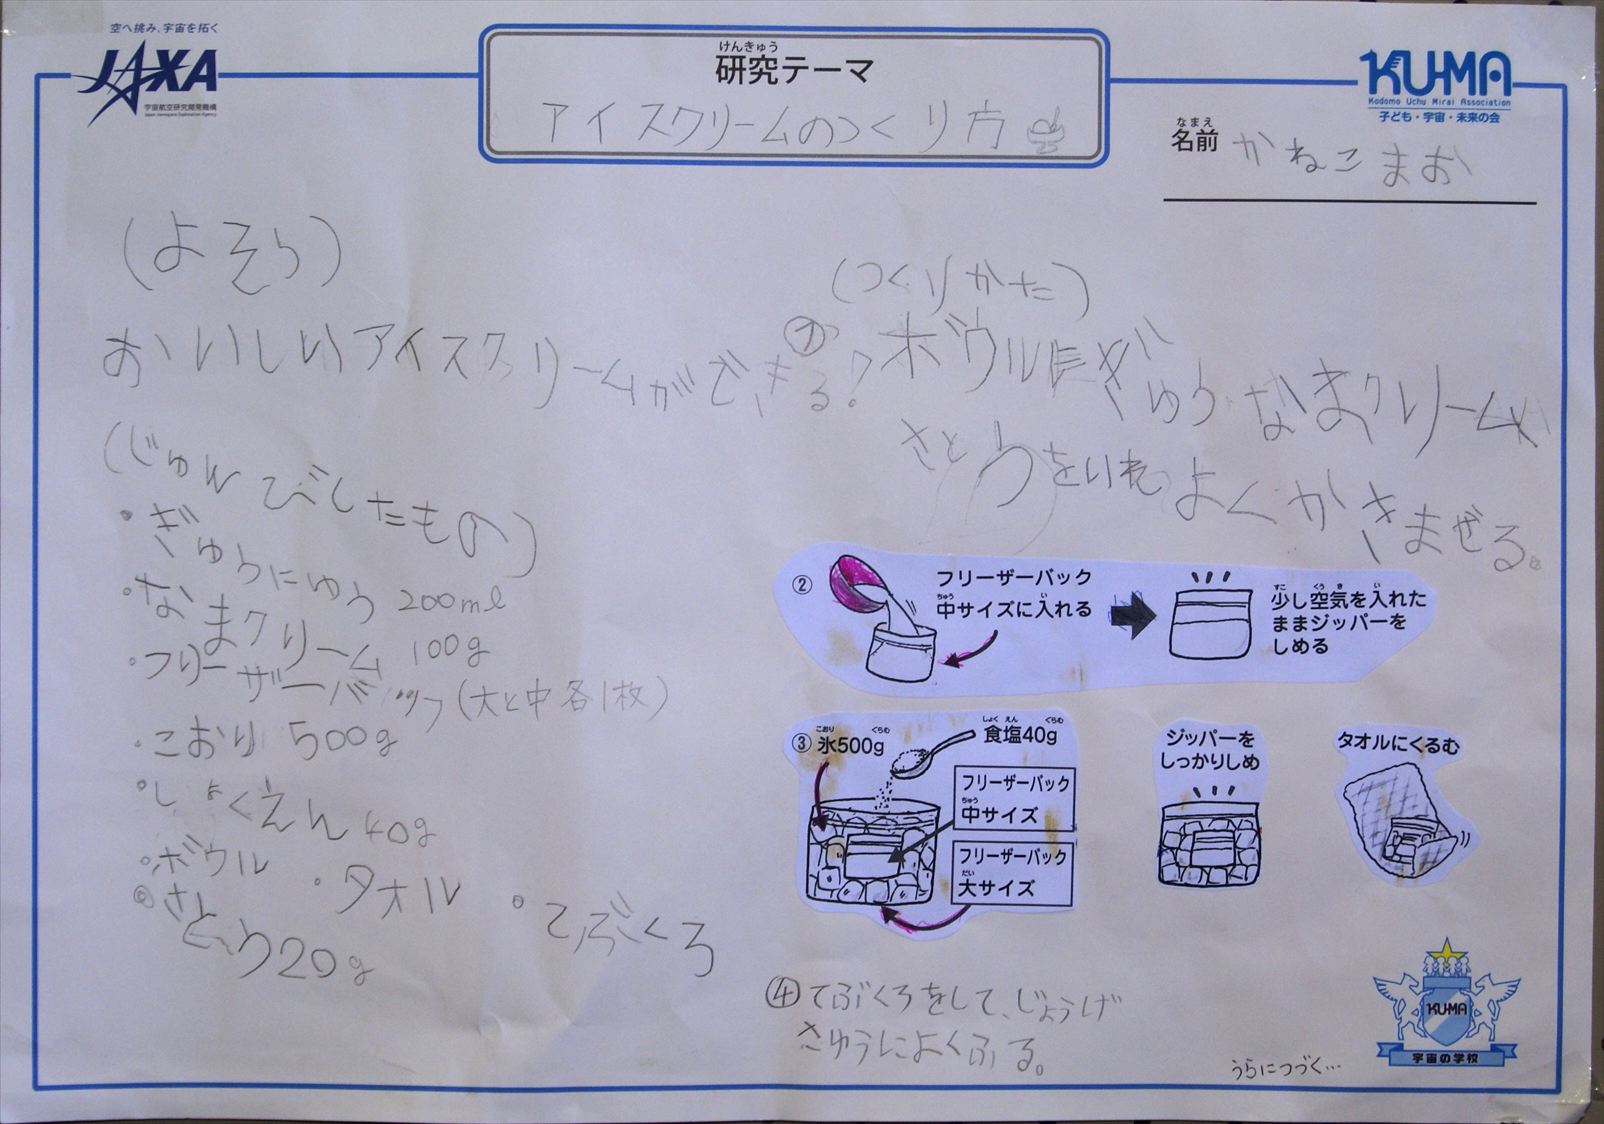 空へ挑み、宇宙を拓く
JAXA
宇宙航空研究開発機構
Japan Aerospace Exploration Agency
けんきゅう
研究テーマ
アイスクリームのつくり方
KU-MA
Kodomo Uchu Mirai Association
子ども・宇宙・未来の会
なまえ
名前 かねこまお
(よそう)
おいしいアイスクリームができる!
(じゅんびしたもの)
・ぎゅうにゅう 200ml
・なまクリーム 100g
・フリーザーバッグ(大と中各1枚)
・こおり 500g
・しょくえん 40g
・ボウル ・タオル ・てぶくろ
・さとう20g
(つくりかた)
① ボウルにぎゅう、なまクリーム、
さとうをいれよくかきまぜる。
② フリーザーバック
ちゅう い
中サイズに入れる
すこ くうき い
少し空気を入れた
ままジッパーを
しめる
こおり ぐらむ
③ 氷500g
しょくえん ぐらむ
食塩40g
フリーザーバック
ちゅう
中サイズ
フリーザーバック
だい
大サイズ
ジッパーを
しっかりしめ
タオルにくるむ
④てぶくろをして、じょうげ
さゆうによくふる。
うらにつづく…
KU-MA
宇宙の学校